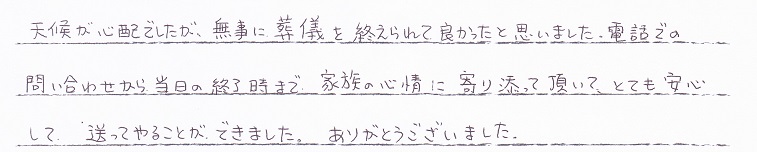 天候が心配でしたが、無事に葬儀を終えられて良かったと思いました。電話での
問い合わせから当日の終了時まで家族の心情に寄り添って頂いて、とても安心
して、送ってやることができました。ありがとうございました。